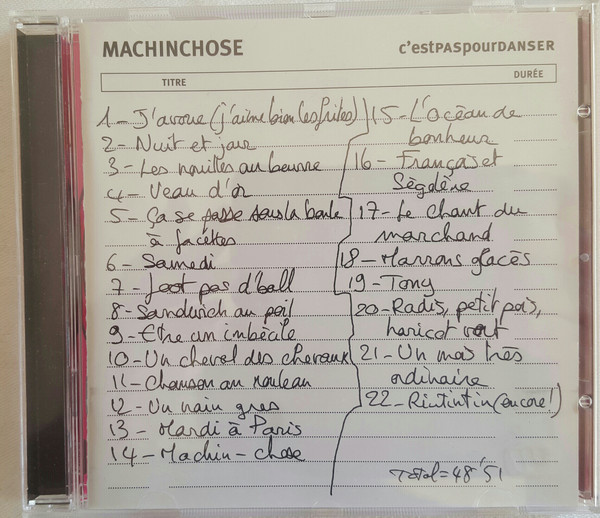 MACHINCHOSE
c'estPASpourDANSER
TITRE
DURÉE
1- J'avoue (j'aime bien les frites)
2- Nuit et jour
3- Les nouilles au beurre
4- Veau d'or
5- Ça se passe sous la boule
à facettes
6- Samedi
7- Foot pas d'ball
8- Sandwich au poil
9- Etre un imbécile
10- Un cheval des chevaux
11- Chanson au rouleau
12- Un nain gros
13- Mardi à Paris
14- Machin-chose
15- L'océan de
bonheur
16- Françoas et
Ségolène
17- Le chant du
marchand
18- Marrons glacés
19- Tony
20- Radis, petit pois,
haricot vert
21- Un mois très
ordinaire
22- Rintintin (encore!)
Total = 48'51